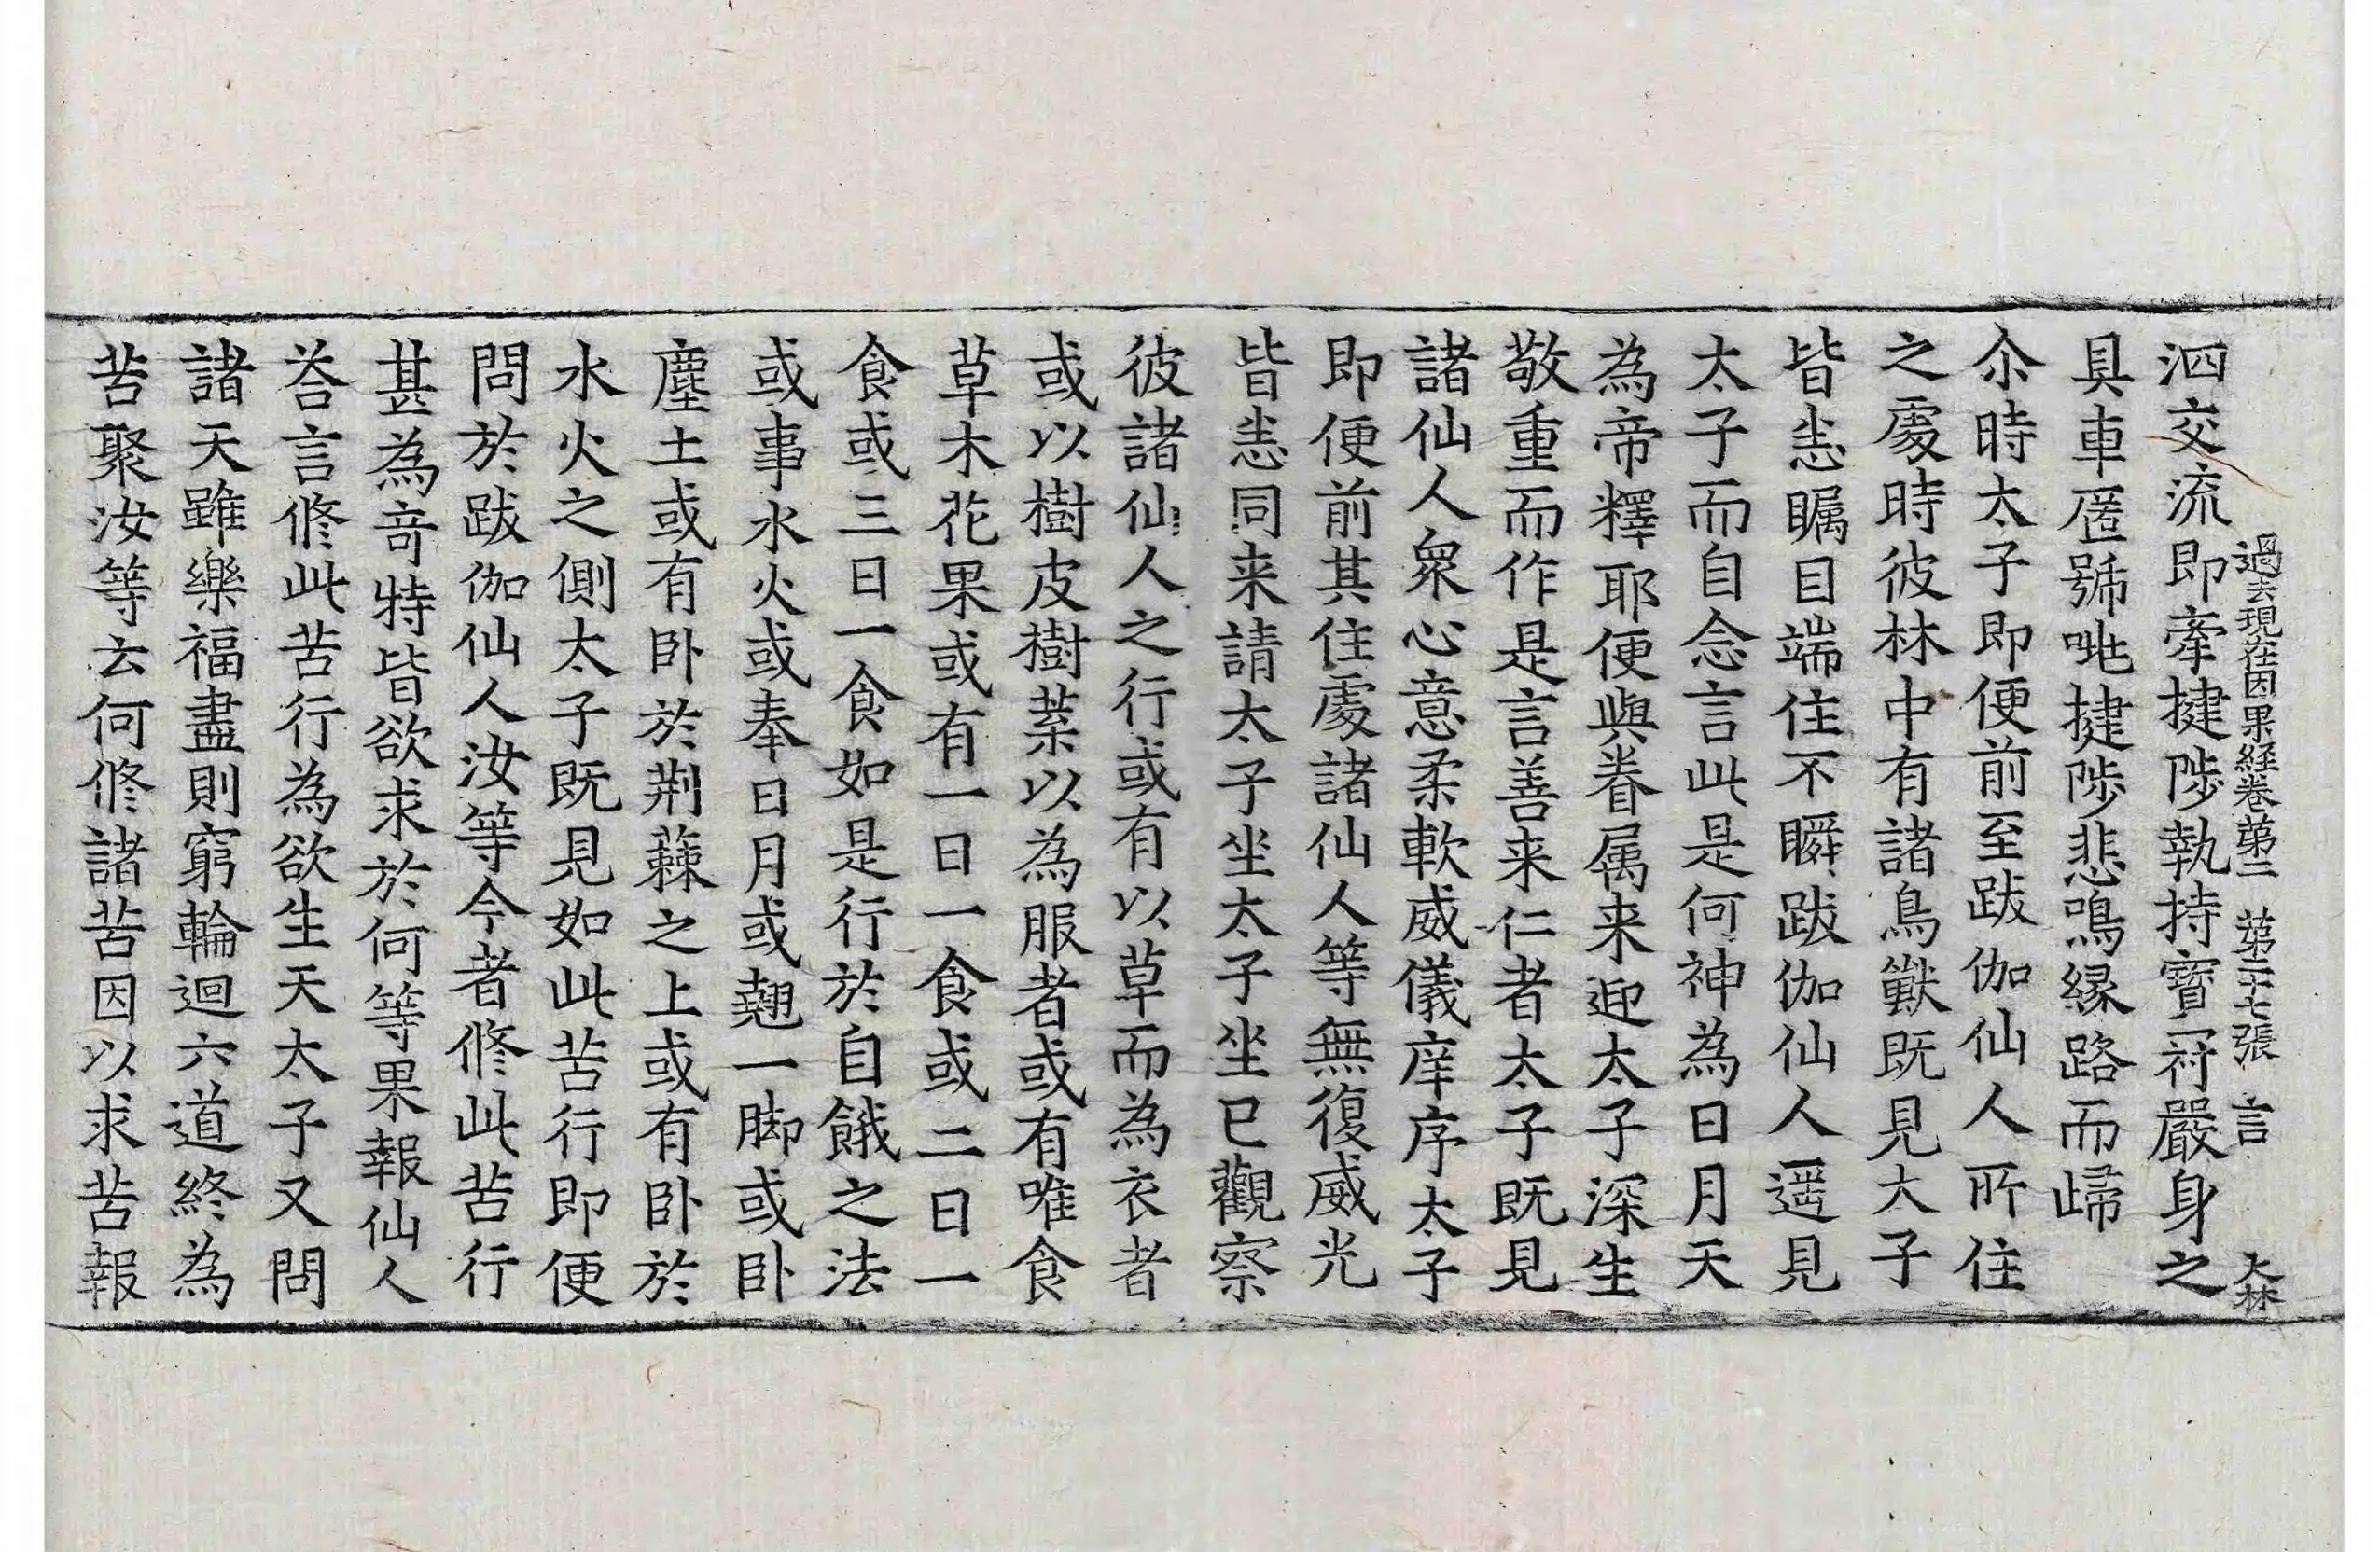 過去現在因果経卷苐二 苐二十七張 言 大林
泗交流即牽揵陟執持寳冠嚴身之
具車匿號咷揵陟悲鳴緣路而歸
尒時太子即便前至跋伽仙人所住
之處時彼林中有諸鳥獸既見太子
皆悉矚目端住不瞬跋伽仙人遥見
太子而自念言此是何神為日月天
為帝釋耶便與眷属来迎太子深生
敬重而作是言善来仁者太子既見
諸仙人衆心意柔軟威儀庠序太子
即便前其住處諸仙人等無復威光
皆悉同来請太子坐太子坐已觀察
彼諸仙人之行或有以草而為衣者
或以樹皮樹葉以為服者或有唯食
草木花果或有一日一食或二日一
食或三日一食如是行於自餓之法
或事水火或奉日月或翹一脚或卧
塵土或有卧於荆蕀之上或有卧於
水火之側太子既見如此苦行即便
問於跋伽仙人汝等今者修此苦行
甚為竒特皆欲求於何等果報仙人
荅言修此苦行為欲生天太子又問
諸天雖樂福盡則窮輪迴六道終為
苦聚汝等云何修諸苦因以求苦報